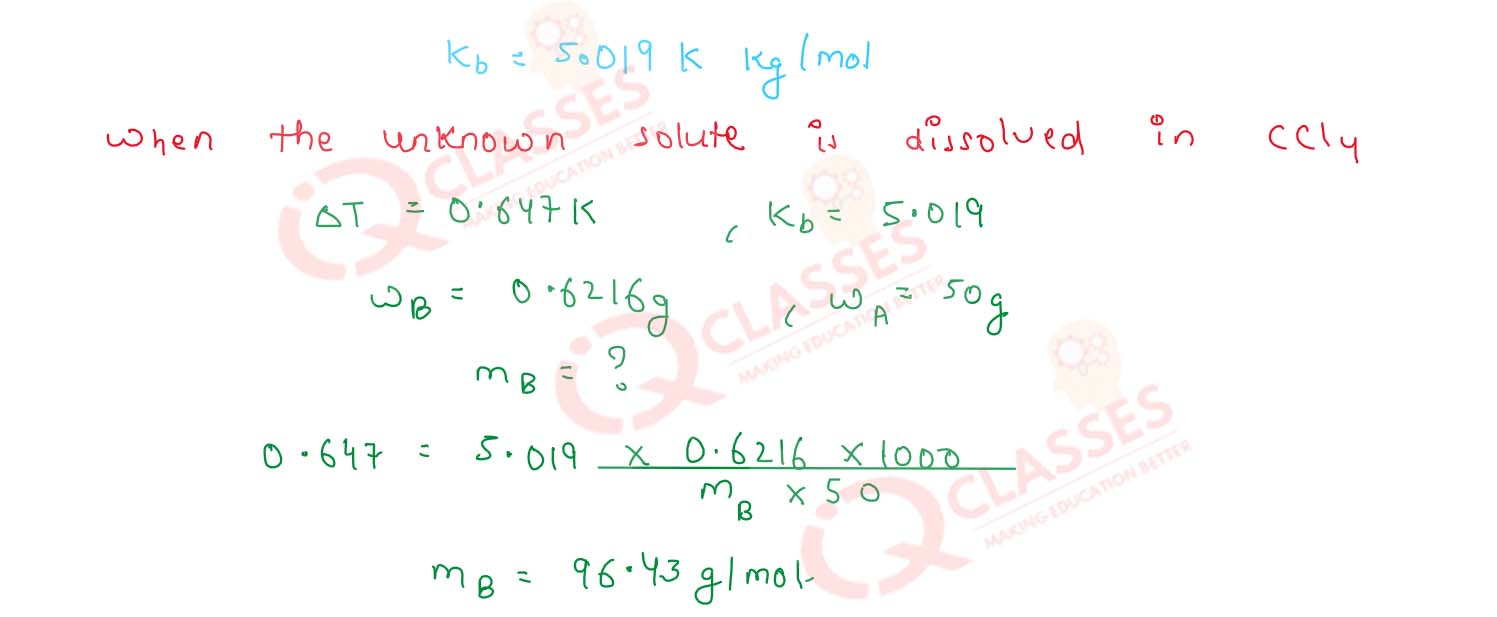 K_b = 5.019 K kg/mol
when the unknown solute is dissolved in CCl4
ΔT = 0.647K , K_b = 5.019
w_B = 0.6216g , w_A = 50g
m_B = ?
0.647 = 5.019 × 0.6216 × 1000
m_B × 50
m_B = 96.43 g/mol.
CLASSES
MAKING EDUCATION BETTER
CLASSES
MAKING EDUCATION BETTER
CLASSES
MAKING EDUCATION BETTER